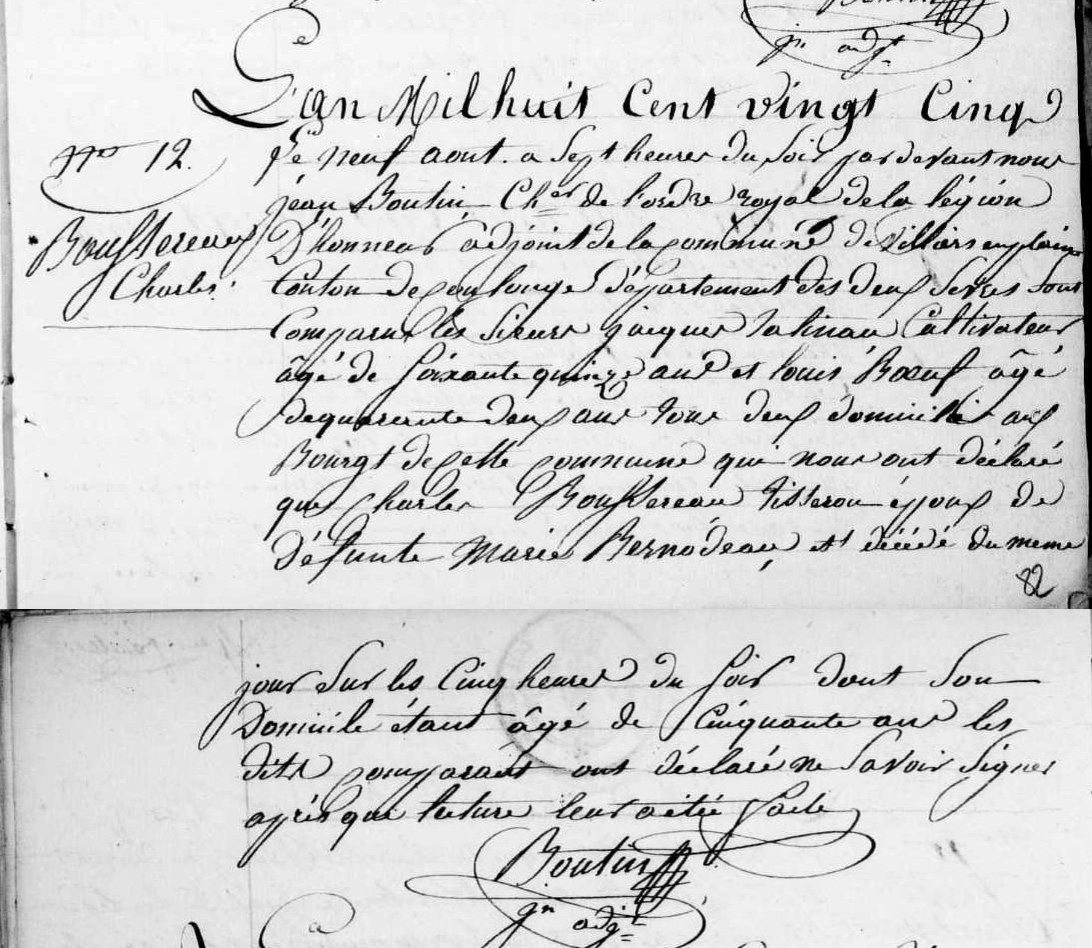 Boutin
pr adjt
L'an Mil huit Cent vingt Cinq
nro 12.
Le neuf aout. a Sept heures du Soir par devant nous
jean Boutin Cher de l'ordre royal de la légion
Boussereau
Charles.
D'honneur adjoint de la commune de Villiers en plaine
Canton de Coulonge département des deux Sevres Sont
Comparu les Sieurs jacques talineau Cultivateur
âgé de Soixante quinze ans et louis Bœuf âgé
de quarente deux ans tous deux domicilié au
Bourgt de cette commune qui nous ont déclaré
que Charles Boussereau tisseron époux de
Défunte Marie Bernodeau, et décédé du meme
82
jour Sur les Cinq heures du Soir dont Son
Domicile étant âgé de Cinquante ans les
dits comparant ont déclaré ne Savoir Signer
après que lecture leur a été faite
Boutin
pr adjt